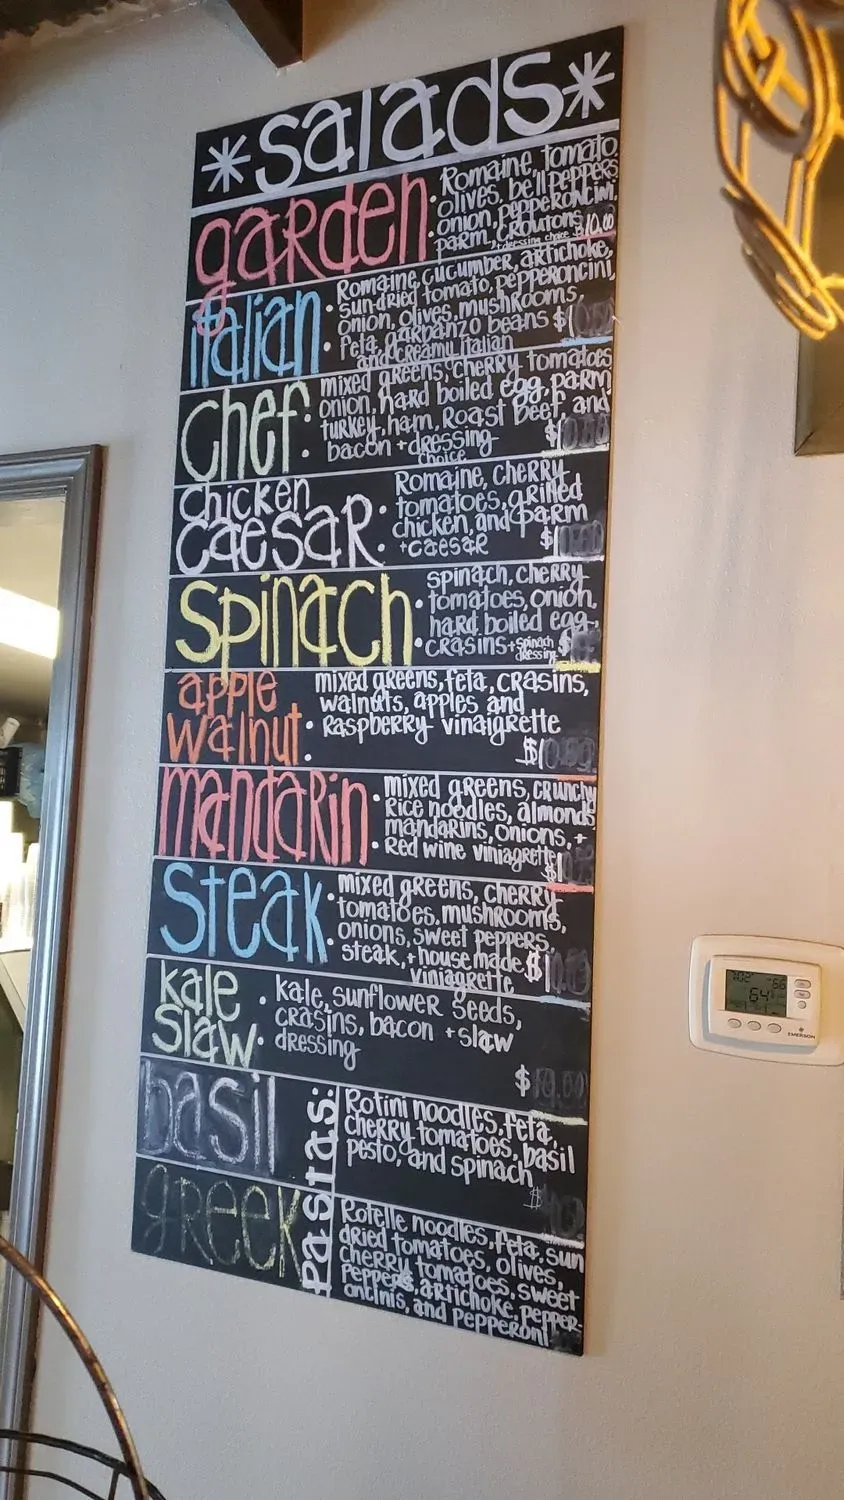 *Salads*
garden
Romaine, tomato
olives, bell peppers
onion, pepperoncini,
parm, croutons
+dressing choice $10.00
italian
Romaine, cucumber, artichoke,
sun-dried tomato, pepperoncini,
onion, olives, mushrooms,
feta, garbanzo beans
and creamy italian
chef:
mixed greens, cherry tomatoes
onion, hard boiled egg, parm
turkey, ham, Roast Beef, and
bacon + dressing
choice
chicken
caesar
Romaine, cherry
tomatoes, grilled
chicken, and parm
+caesar
Spinach
spinach, cherry
tomatoes, onion,
hard boiled egg,
crasins + spinach
dressing
apple
walnut
mixed greens, feta, crasins,
walnuts, apples and
raspberry vinaigrette
mandarin
mixed greens, crunchy
Rice noodles, almonds
mandarins, onions, +
Red wine viniagrette
Steak
mixed greens, cherry
tomatoes, mushrooms,
onions, sweet peppers,
steak, + house made
viniagrette
Kale
Slaw
kale, sunflower seeds,
crasins, bacon + slaw
dressing
Pastas:
basil
Rotini noodles, feta,
cherry tomatoes, basil
pesto, and spinach
greek
Rotelle noodles, feta, sun
dried tomatoes, olives,
cherry tomatoes, sweet
peppers, artichoke, pepper-
oncinis, and pepperoni
64
EMERSON